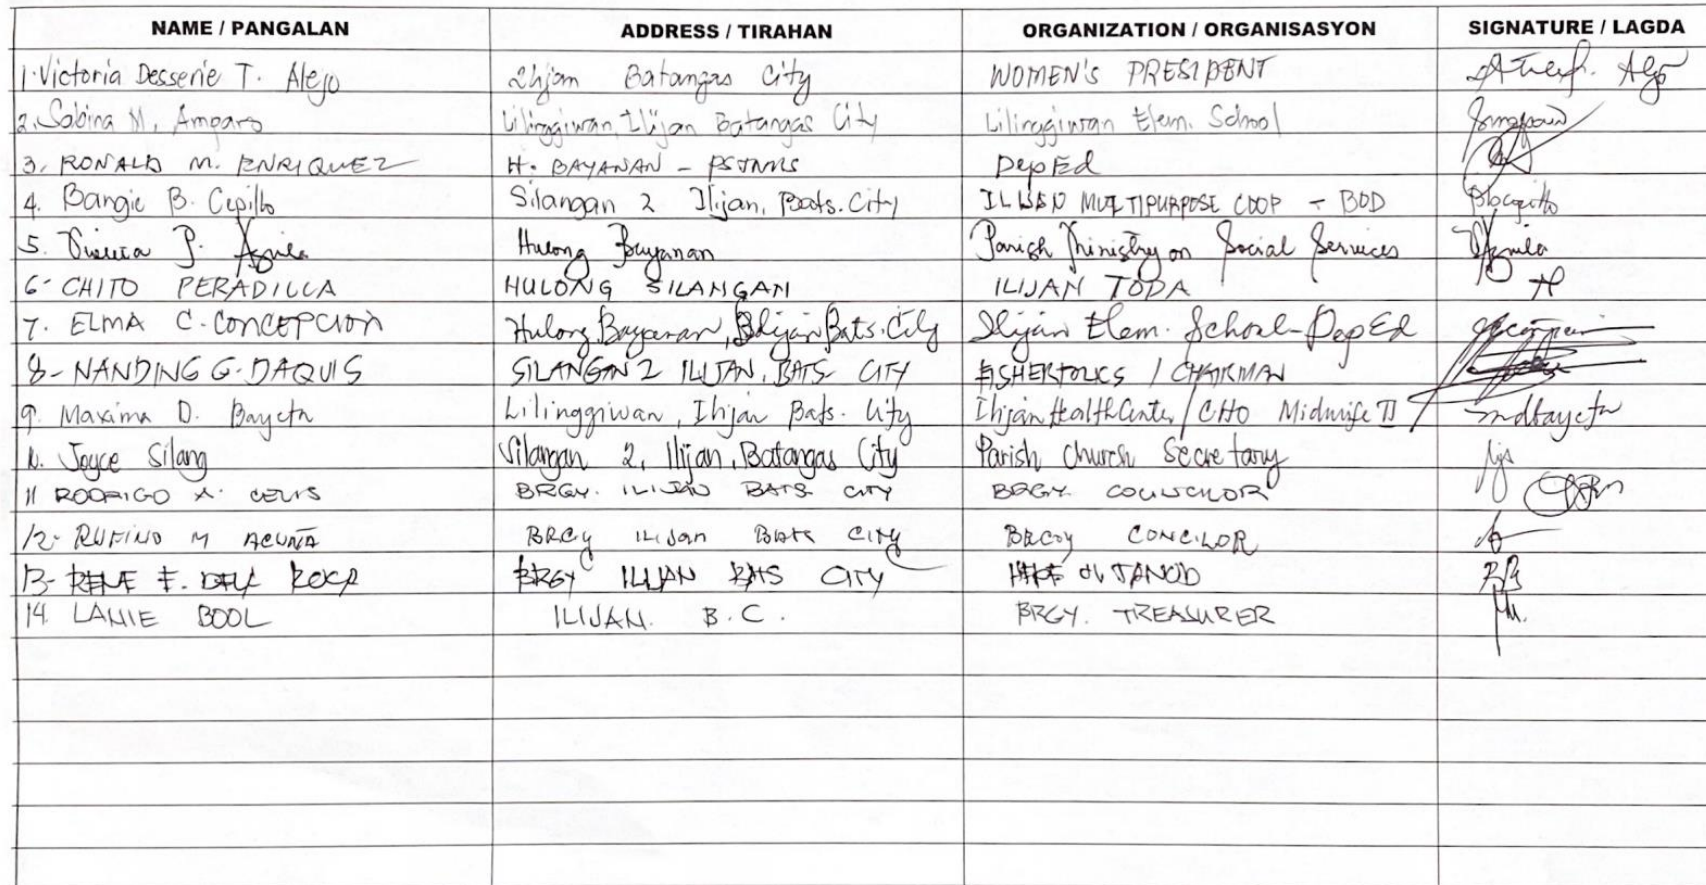 NAME / PANGALAN ADDRESS / TIRAHAN ORGANIZATION / ORGANISASYON SIGNATURE / LAGDA
1. Victoria Desserie T. Alejo Ilijan Batangas City WOMEN'S PRESIDENT
2. Sabina M. Amparo Lilinggiwan, Ilijan Batangas City Lilinggiwan Elem. School
3. RONALD M. ENRIQUEZ H. BAYANAN - PSJNMS DepEd
4. Bangie B. Cepillo Silangan 2 Ilijan, Bats. City ILIJAN MULTIPURPOSE COOP - BOD
5. P. Aguila Hulong Bayanan Parish Ministry on Social Services
6- CHITO PERADILLA HULONG SILANGAN ILIJAN TODA
7. ELMA C. CONCEPCION Hulong Bayanan, Ilijan Bats. City Ilijan Elem. School-DepEd
8- NANDING G. DAQUIS SILANGAN 2 ILIJAN, BATS CITY FISHERFOLKS / CHAIRMAN
9. Maxima D. Bayeta Lilinggiwan, Ilijan Bats. City Ilijan Health Center / CHO Midwife II mdbayeta
10. Joyce Silang Silangan 2, Ilijan, Batangas City Parish Church Secretary
11 RODRIGO A. CELIS BRGY. ILIJAN BATS CITY BRGY. COUNCILOR
12- RUFINO M ACUÑA BRGY ILIJan BATS CITY BRGY CONCILOR
13- RENE E. ROCA BRGY ILIJAN BATS CITY TANOD
14. LANIE BOOL ILIJAN. B.C. BRGY. TREASURER